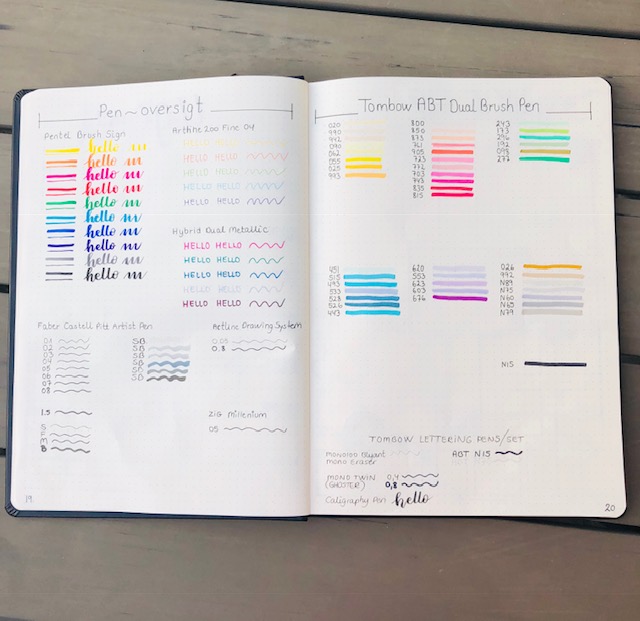 Pen~oversigt
Pentel Brush Sign
hello m
hello m
hello m
hello m
hello m
hello m
hello m
hello m
hello m
hello m
Artline 200 Fine 04
HELLO HELLO
HELLO HELLO
HELLO HELLO
HELLO HELLO
Hybrid Dual Metallic
HELLO HELLO
HELLO HELLO
HELLO HELLO
HELLO HELLO
HELLO HELLO
Faber Castell Pitt Artist Pen
01
02
03
04
05
06
07
08
1.5
S
F
M
B
SB
SB
SB
SB
SB
SB
Artline Drawing System
0.05
0.8
Zig Millenium
05
19
Tombow ABT Dual Brush Pen
020
990
992
090
062
055
025
993
800
850
873
761
705
723
772
703
743
835
815
243
173
296
192
098
277
451
515
493
533
528
526
443
620
553
623
603
676
026
992
N89
N75
N60
N65
N79
N15
TOMBOW LETTERING PENS/SET
mono100 Blyant
mono Eraser
MONO TWIN 0,4
(GHOSTER) 0,8
Caligraphy Pen hello
ABT N15
20